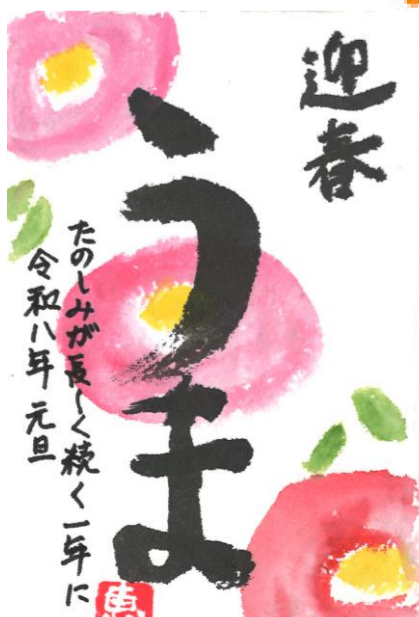 迎春
うま
たのしみが長〜く続く一年に
令和八年 元旦
恵